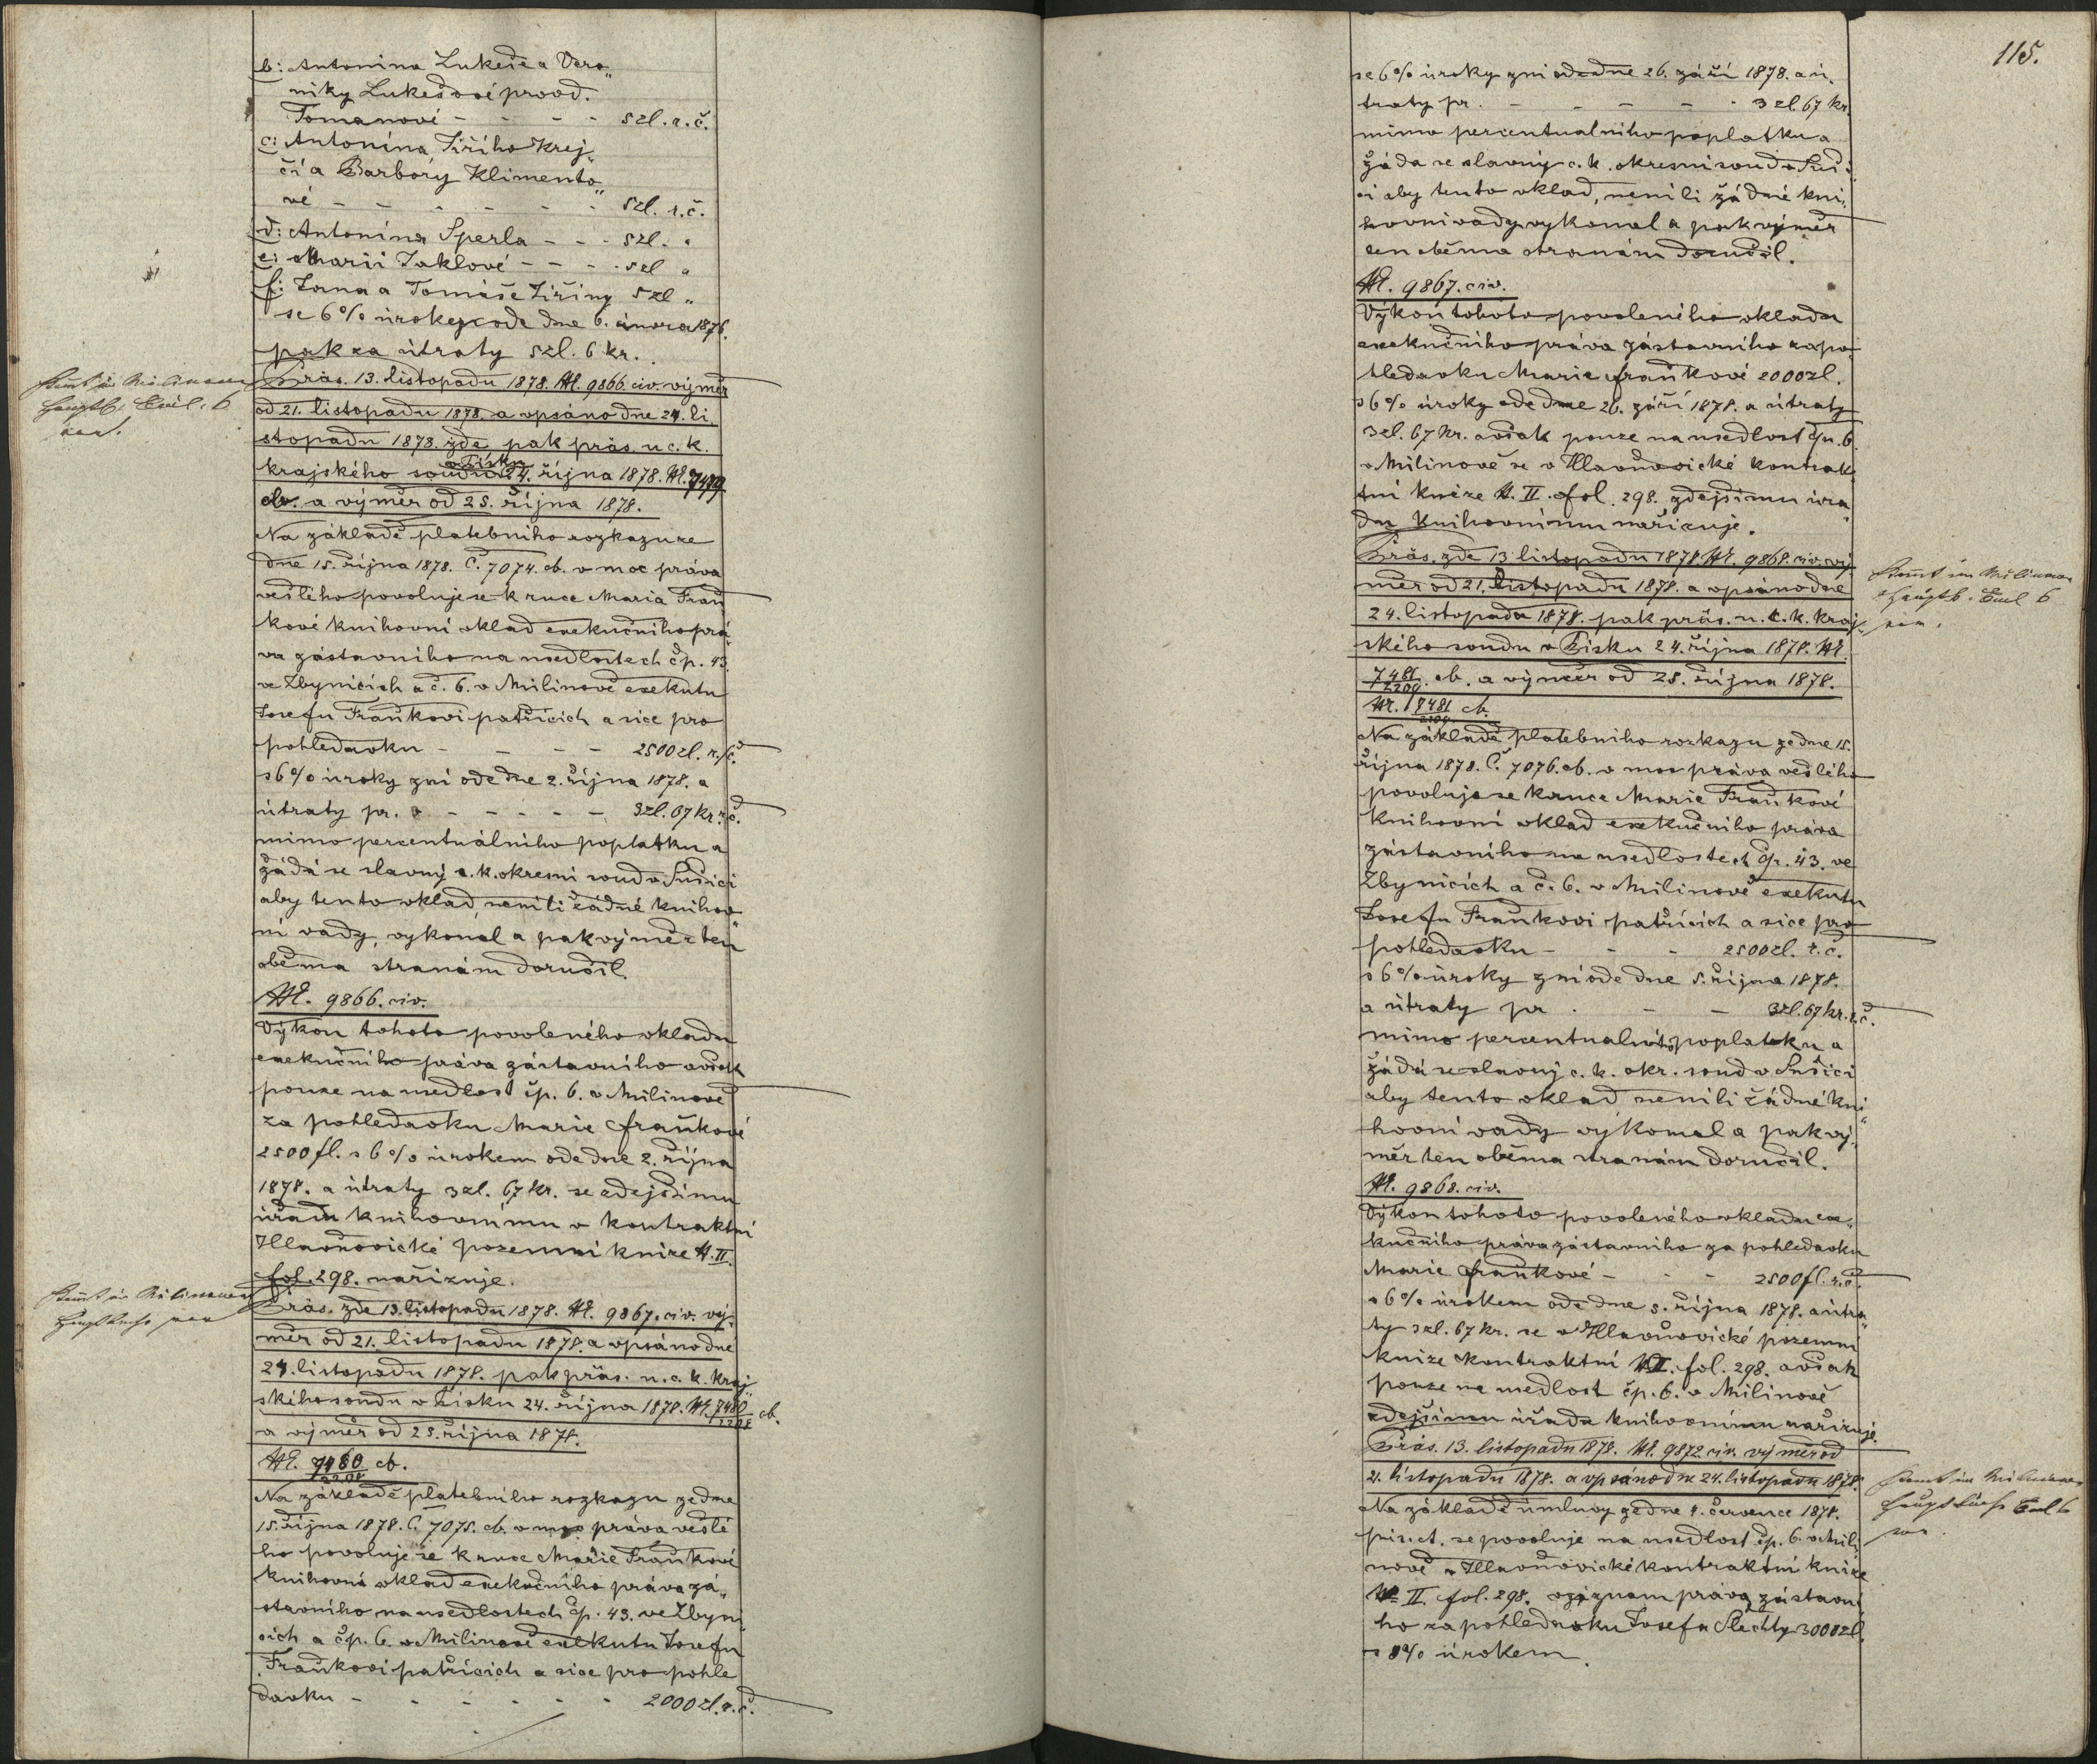 b: Antonina Lukeše a Vero„
niky Lukešové provd.
Tomanové - - - - 5 zl. r. č.
c: Antonína Jiřího Krej„
čí a Barbory Klimento„
vé - - - - - - 5 zl. r. č.
d: Antonína Šperla - - - 5 zl. „
e: Marii Jaklové - - - - 5 zl „
f: Jana a Tomáše Jiřiny 5 zl „
se 6% úroky ode dne 6. února 1876.
pak za útraty 5 zl. 6 kr.
Präs. 13. listopadu 1878. N. 9866. civ. výměr
od 21. listopadu 1878. a vpsáno dne 24. li„
stopadu 1878. zde, pak präs. u c. k.
krajského soudu v Písku 24. října 1878. N. 7479
cb. a výměr od 25. října 1878.
Na základě platebního rozkazu ze
dne 15. října 1878. Č. 7074. cb. v moc práva
vešlého povoluje se k ruce Maria Fraň„
kové knihovní vklad exekučního prá„
va zástavního na usedlostech čp. 43.
ve Zbynicích a č. 6. v Milínově exekutu
Josefu Fraňkovi patřících a sice pro
pohledavku - - - - 2500 zl. r. č.
s 6% úroky zní ode dne 2. října 1878. a
útraty pr. - - - - - 3 zl. 67 kr. r. č.
mimo percentuálního poplatku a
žádá se slavný c. k. okresní soud v Sušici
aby tento vklad, neníli žádné knihov„
ní vady, vykonal a pak výměr ten
oběma stranám doručil.
N. 9866. civ.
Výkon tohoto povoleného vkladu
exekučního práva zástavního avšak
pouze na usedlost čp. 6. v Milínově
za pohledavku Marie Fraňkové
2500 fl. s 6% úrokem ode dne 2. října
1878. a útraty 3 zl. 67 kr. se zdejšímu
úřadu knihovnímu v kontraktní
Hlavňovické pozemní knize N. II.
fol. 298. nařizuje.
Präs. zde 13. listopadu 1878. N. 9867. civ. vý„
měr od 21. listopadu 1878. a vpsáno dne
24. listopadu 1878. pak präs. u. c. k. kraj„
ského soudu v Písku 24. října 1878. N. 7480/2208 cb.
a výměr od 25. října 1878.
N. 7480/2208 cb.
Na základě platebního rozkazu ze dne
15. října 1878. Č. 7075. cb. v moc práva vešlé
ho povoluje se k ruce Marie Fraňkové
knihovní vklad exekučního práva zá„
stavního na usedlostech čp. 43. ve Zbyni„
cích a čp. 6. v Milínově exekutu Josefu
Fraňkovi patřících a sice pro pohle
davku - - - - - - 2000 zl. r. č.
115.
se 6% úroky zní ode dne 26. září 1878. a ú„
traty pr. - - - - - 3 zl. 67 kr.
mimo percentualního poplatku a
žáda se slavný c. k. okresní soud v Suši„
ci aby tento vklad, neníli žádné kni„
hovní vady vykonal a pak výměr
ten oběma stranám doručil.
N. 9867. civ.
Výkon tohoto povoleného vkladu
exekučního práva zástavního za po„
hledavku Marie Fraňkové 2000 zl.
s 6% úroky ode dne 26. září 1878. a útraty
3 zl. 67 kr. avšak pouze na usedlost čp. 6
v Milínově se v Hlavňovické kontrak„
tní knize N. II. fol. 298. zdejšímu úřa„
du knihovnímu nařizuje.
Präs. zde 13. listopadu 1878. N. 9868. civ. vý„
měr od 21. listopadu 1878. a vpsáno dne
24. listopadu 1878. pak präs. u. c. k. kraj„
ského soudu v Písku 24. října 1878. N.
7481/2209. cb. a výměr od 25. října 1878.
Nr. 7481/2209 cb.
Na základě platebního rozkazu ze dne 15.
října 1878. Č. 7076. cb. v moc práva vešlého
povoluje se k ruce Marie Fraňkové
knihovní vklad exekučního práva
zástavního na usedlostech čp. 43. ve
Zbynicích a č. 6. v Milínově exekutu
Josefu Fraňkovi patřících a sice pro
pohledavku - - - 2500 zl. r. č.
s 6% úroky zní ode dne 5. října 1878.
a útraty pr. - - 3 zl. 67 kr. r. č.
mimo percentualního poplatku a
žádá se slavný c. k. okr. soud v Sušici
aby tento vklad neníli žádné kni„
hovní vady výkonal a pak vý„
měr ten oběma stranám doručil.
N. 9868. civ.
Výkon tohoto povoleného vkladu exe„
kučního práva zástavního za pohledavku
Marie Fraňkové - - - 2500 fl. r. č.
s 6% úrokem ode dne 5. října 1878. a útra„
ty 3 zl. 67 kr. se v Hlavňovické pozemní
knize kontraktní N. II. fol. 298. avšak
pouze na usedlost čp. 6. v Milínově
zdejšímu úřadu knihovnímu nařizuje.
Präs. 13. listopadu 1878. N. 9872. civ. výměr od
21. listopadu 1878. a vpsáno dne 24. listopadu 1878.
Na základě úmluvy ze dne 4. července 1878.
se povoluje na usedlost čp. 6. v Milí„
nově v Hlavňovické kontraktní knize
N. II. fol. 298. záznam práva zástavní
ho za pohledavku Josefa Šlechty 3000 zl.
s 8% úrokem.